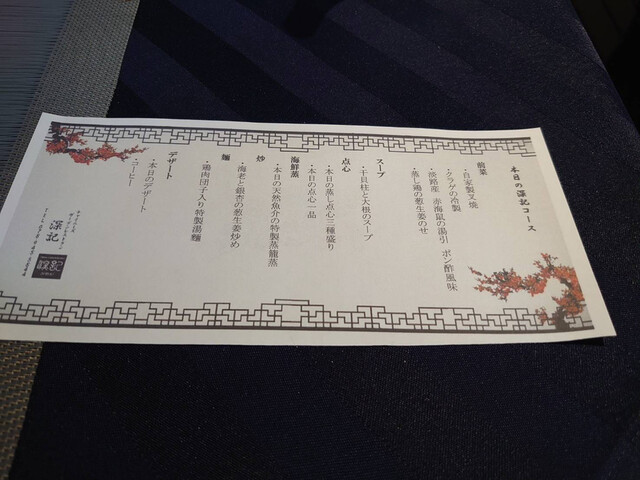 本日の深記コース
前菜
・自家製叉焼
・クラゲの冷製
・淡路産 赤海鼠の湯引 ポン酢風味
・蒸し鶏の葱生姜のせ
スープ
・干貝柱と大根のスープ
点心
・本日の蒸し点心三種盛り
・本日の点心一品
海鮮蒸
・本日の天然魚介の特製蒸籠蒸
炒
・海老と銀杏の葱生姜炒め
麺
・鶏肉団子入り特製湯麺
デザート
・本日のデザート
・コーヒー
深記